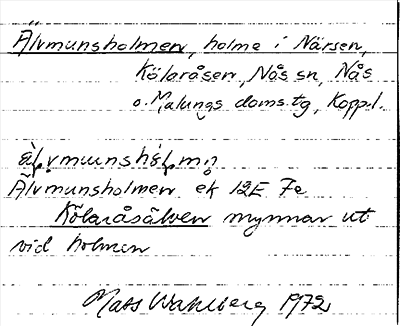 Älvmunsholmen, holme i Närsen,
Kölaråsen, Nås sn, Nås
o. Malungs doms.tg, Koppl.
Älvmunsholmen ek 12E 7e
Kölaråsälven mynnar ut
vid holmen
Mats Wahlberg 1972